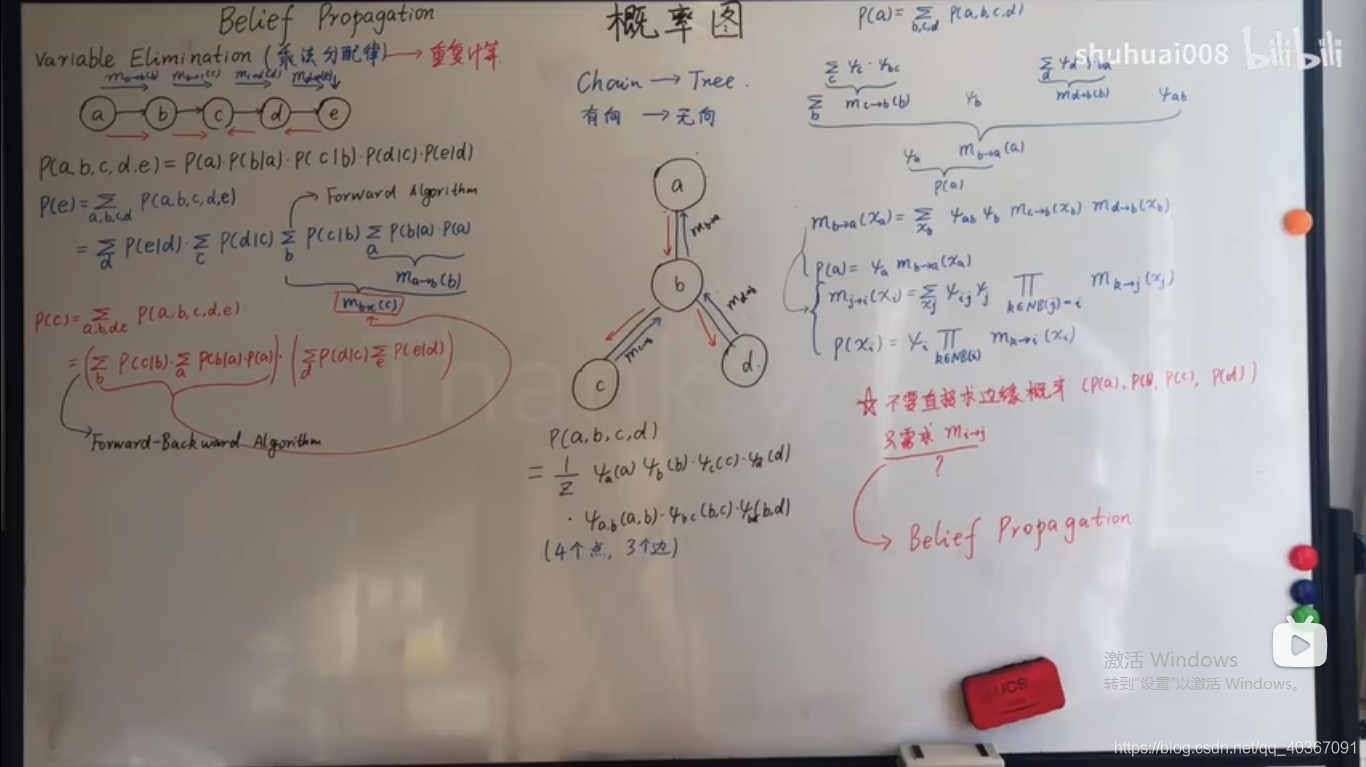 Belief Propagation
Variable Elimination (乘法分配律) → 重复计算
m_{a→b}(b) m_{b→c}(c) m_{c→d}(d) m_{d→e}(e)
a b c d e
P(a,b,c,d.e) = P(a)·P(b|a)·P(c|b)·P(d|c)·P(e|d)
P(e) = Σ_{a,b,c,d} P(a,b,c,d,e)
→ Forward Algorithm
= Σ_d P(e|d)·Σ_c P(d|c) Σ_b P(c|b) Σ_a P(b|a)·P(a)
m_{a→b}(b)
m_{b→c}(c)
P(c) = Σ_{a,b,d,e} P(a,b,c,d,e)
= (Σ_b P(c|b)·Σ_a P(b|a)·P(a))·(Σ_d P(d|c) Σ_e P(e|d))
Forward-Backward Algorithm
概率图
Chain → Tree.
有向 → 无向
a
m_{b→a}
b
m_{c→b}
m_{d→b}
c
d
P(a,b,c,d)
= 1/Z ψ_a(a) ψ_b(b)·ψ_c(c)·ψ_d(d)
· ψ_{a,b}(a,b)·ψ_{bc}(b,c)·ψ_{bd}(b,d)
(4个点, 3个边)
P(a) = Σ_{b,c,d} P(a,b,c,d)
shuhuai008 bilibili
Σ_c ψ_c·ψ_{bc}
Σ_b m_{c→b}(b) ψ_b m_{d→b}(b) ψ_{ab}
ψ_a m_{b→a}(a)
P(a)
m_{b→a}(x_a) = Σ_{x_b} ψ_{ab} ψ_b m_{c→b}(x_b) m_{d→b}(x_b)
P(a) = ψ_a m_{b→a}(x_a)
m_{j→i}(x_i) = Σ_{x_j} ψ_{ij} ψ_j ∏_{k∈NB(j)-i} m_{k→j}(x_j)
P(x_i) = ψ_i ∏_{k∈NB(i)} m_{k→i}(x_i)
☆ 不要直接求边缘概率 (P(a), P(b), P(c), P(d))
只需求 m_{i→j}
?
Belief Propagation
Thank yo
激活 Windows
转到"设置"以激活 Windows。
https://blog.csdn.net/qq_40367091